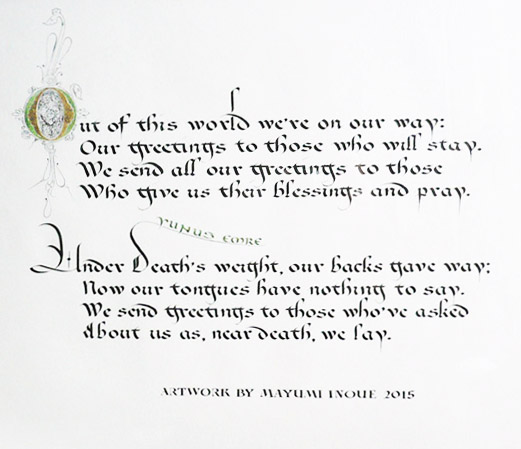 Out of this world we're on our way:
Our greetings to those who will stay.
We send all our greetings to those
Who give us their blessings and pray.
YUNUS EMRE
Under Death's weight, our backs gave way:
Now our tongues have nothing to say.
We send greetings to those who've asked
About us as, near death, we lay.
ARTWORK BY MAYUMI INOUE 2015